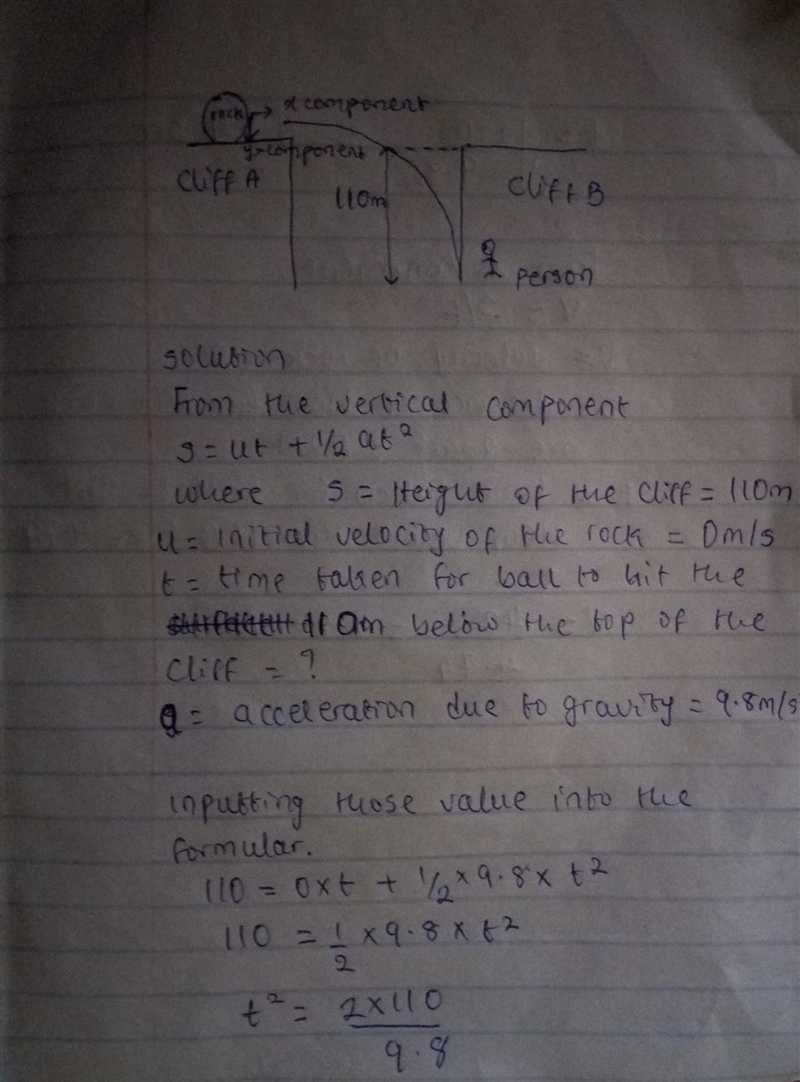 rock
x component
y-component
Cliff A
110m
Cliff B
person
solution
From the vertical component
s = ut + 1/2 at²
where S = Height of the Cliff = 110m
u = Initial velocity of the rock = 0m/s
t = time taken for ball to hit the
110m below the top of the
Cliff = ?
g = acceleration due to gravity = 9.8m/s
inputting those value into the
formular.
110 = 0xt + 1/2 x 9.8 x t²
110 = 1/2 x 9.8 x t²
t² = 2x110/9.8